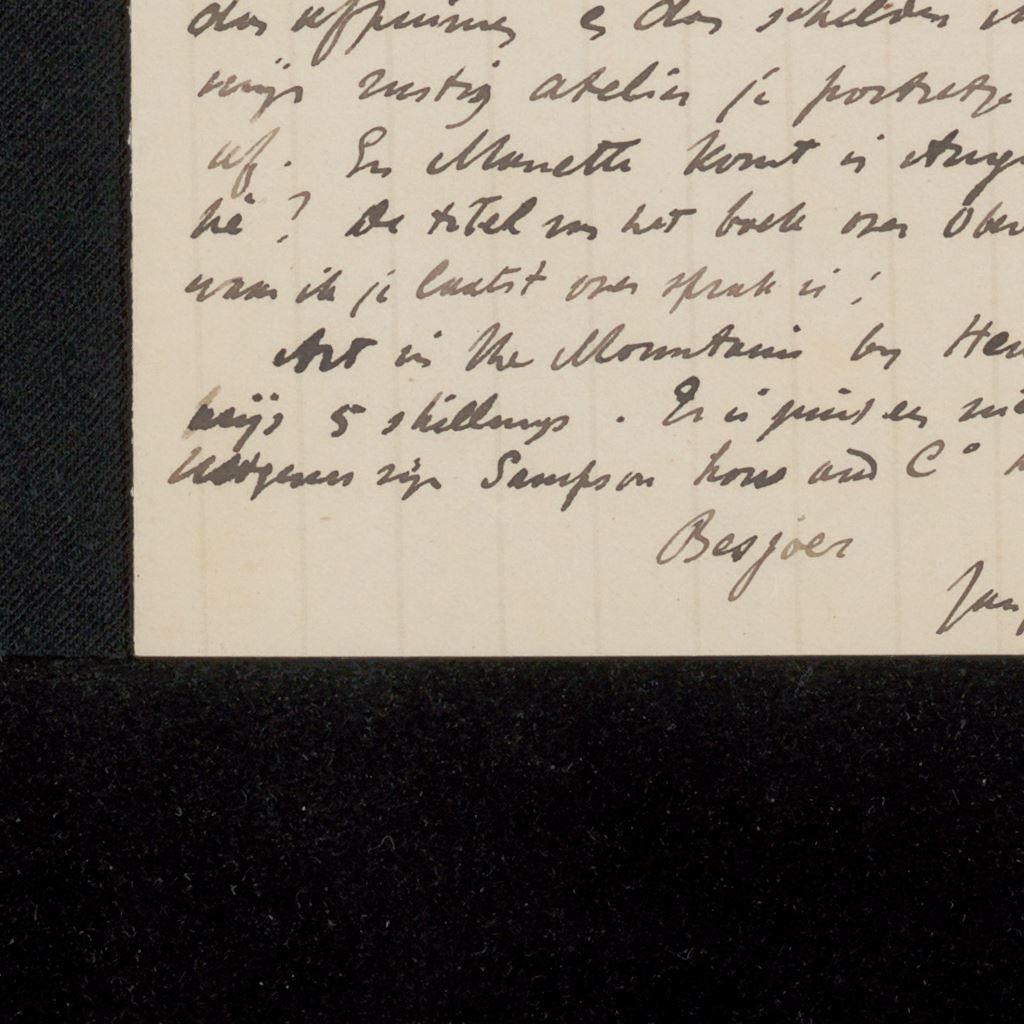 dan schilder
rustig atelier je portretje
af. En Manette komt in
hè? De titel van het boek over Ober
waar ik je laatst over sprak is:
Art in the Mountains by Hen
prijs 5 shillings. Er is
Uitgevers zijn Sampson Low and C°
Besjoer
Jan